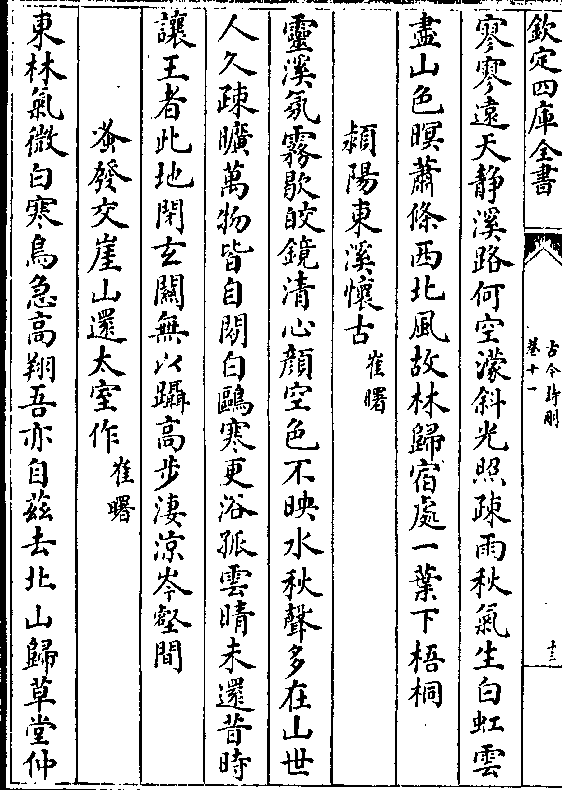 欽定四庫全書
古今詩刪
卷十一
十三
寥寥遠天静溪路何空濛斜光照疎雨秋氣生白虹雲
盡山色暝蕭條西北風故林歸宿處一葉下梧桐
潁陽東溪懷古崔曙
靈溪氛霧歇皎鏡清心顔空色不映水秋聲多在山世
人久疎曠萬物皆自閑白鷗寒更浴孤雲晴未還昔時
讓王者此地閉玄關無以躡高步淒涼岑壑間
蚤發交崖山還太室作崔曙
東林氣微白寒鳥急高翔吾亦自茲去北山歸草堂仲